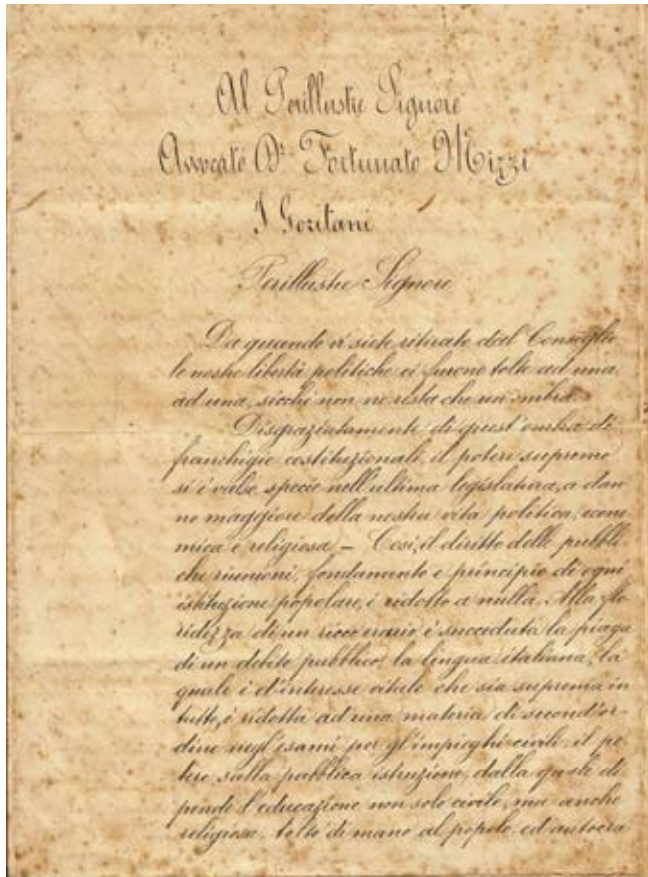 Al Perillustre Signore
Avvocato Dr Fortunato Mizzi
I Gozitani
Perillustre Signore
Da quando vi siete ritirato dal Consiglio
le nostre libertà politiche ci furono tolte ad una
ad una, sicchè non ne resta che un'ombra.
Disgraziatamente di quest'ombra di
franchigie costituzionali, il potere supremo
si è valso, specie nell'ultima legislatura, a dan
no maggiore della nostra vita politica, econo
mica e religiosa – Così, il diritto delle pubbli
che riunioni, fondamento e principio di ogni
istituzione popolare, è ridotto a nulla. Alla flo
ridezza di un ricco erario è succeduta la piaga
di un debito pubblico; la lingua italiana, la
quale è d'interesse vitale che sia suprema in
tutto, è ridotta ad una materia di second'or
dine negl'esami per gl'impieghi civili; il po
tere sulla pubblica istruzione, dalla quale di
pende l'educazione non solo civile, ma anche
religiosa, tolto di mano al popolo ed autocra